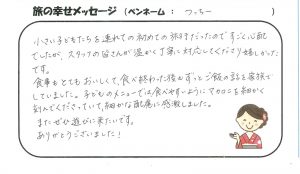 旅の幸せメッセージ (ペンネーム： つっちー )
小さい子どもたちを連れての初めての旅行だったのですごく心配
でしたが、スタッフの皆さんが温かく丁寧に対応してくださり嬉しかった
です。
食事もとてもおいしくて、食べ終わった後もずっとご飯の話を家族で
していました。子どものメニューでは食べやすいようにマカロニを細かく
刻んでくださっていて、細かな配慮に感激しました。
またぜひ遊びに来たいです。
ありがとうございました!